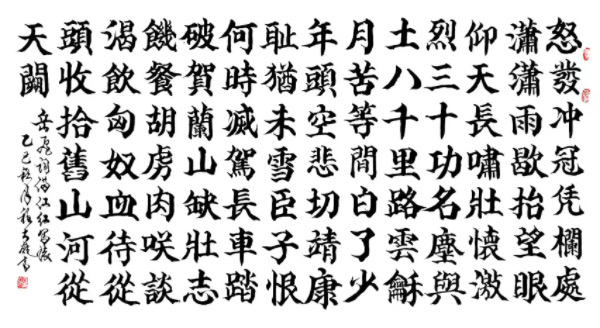 怒發冲冠凭欄處
瀟瀟雨歇抬望眼
仰天長嘯壯懷激
烈三十功名塵與
土八千里路雲龢
月苦等間白了少
年頭空悲切靖康
耻猶未雪臣子恨
何時滅駕長車踏
破賀蘭山缺壯志
饑餐胡虜肉咲談
渴飲匈奴血待從
頭收拾舊山河從
天闕
岳飛詞滿江紅寫懷
乙巳